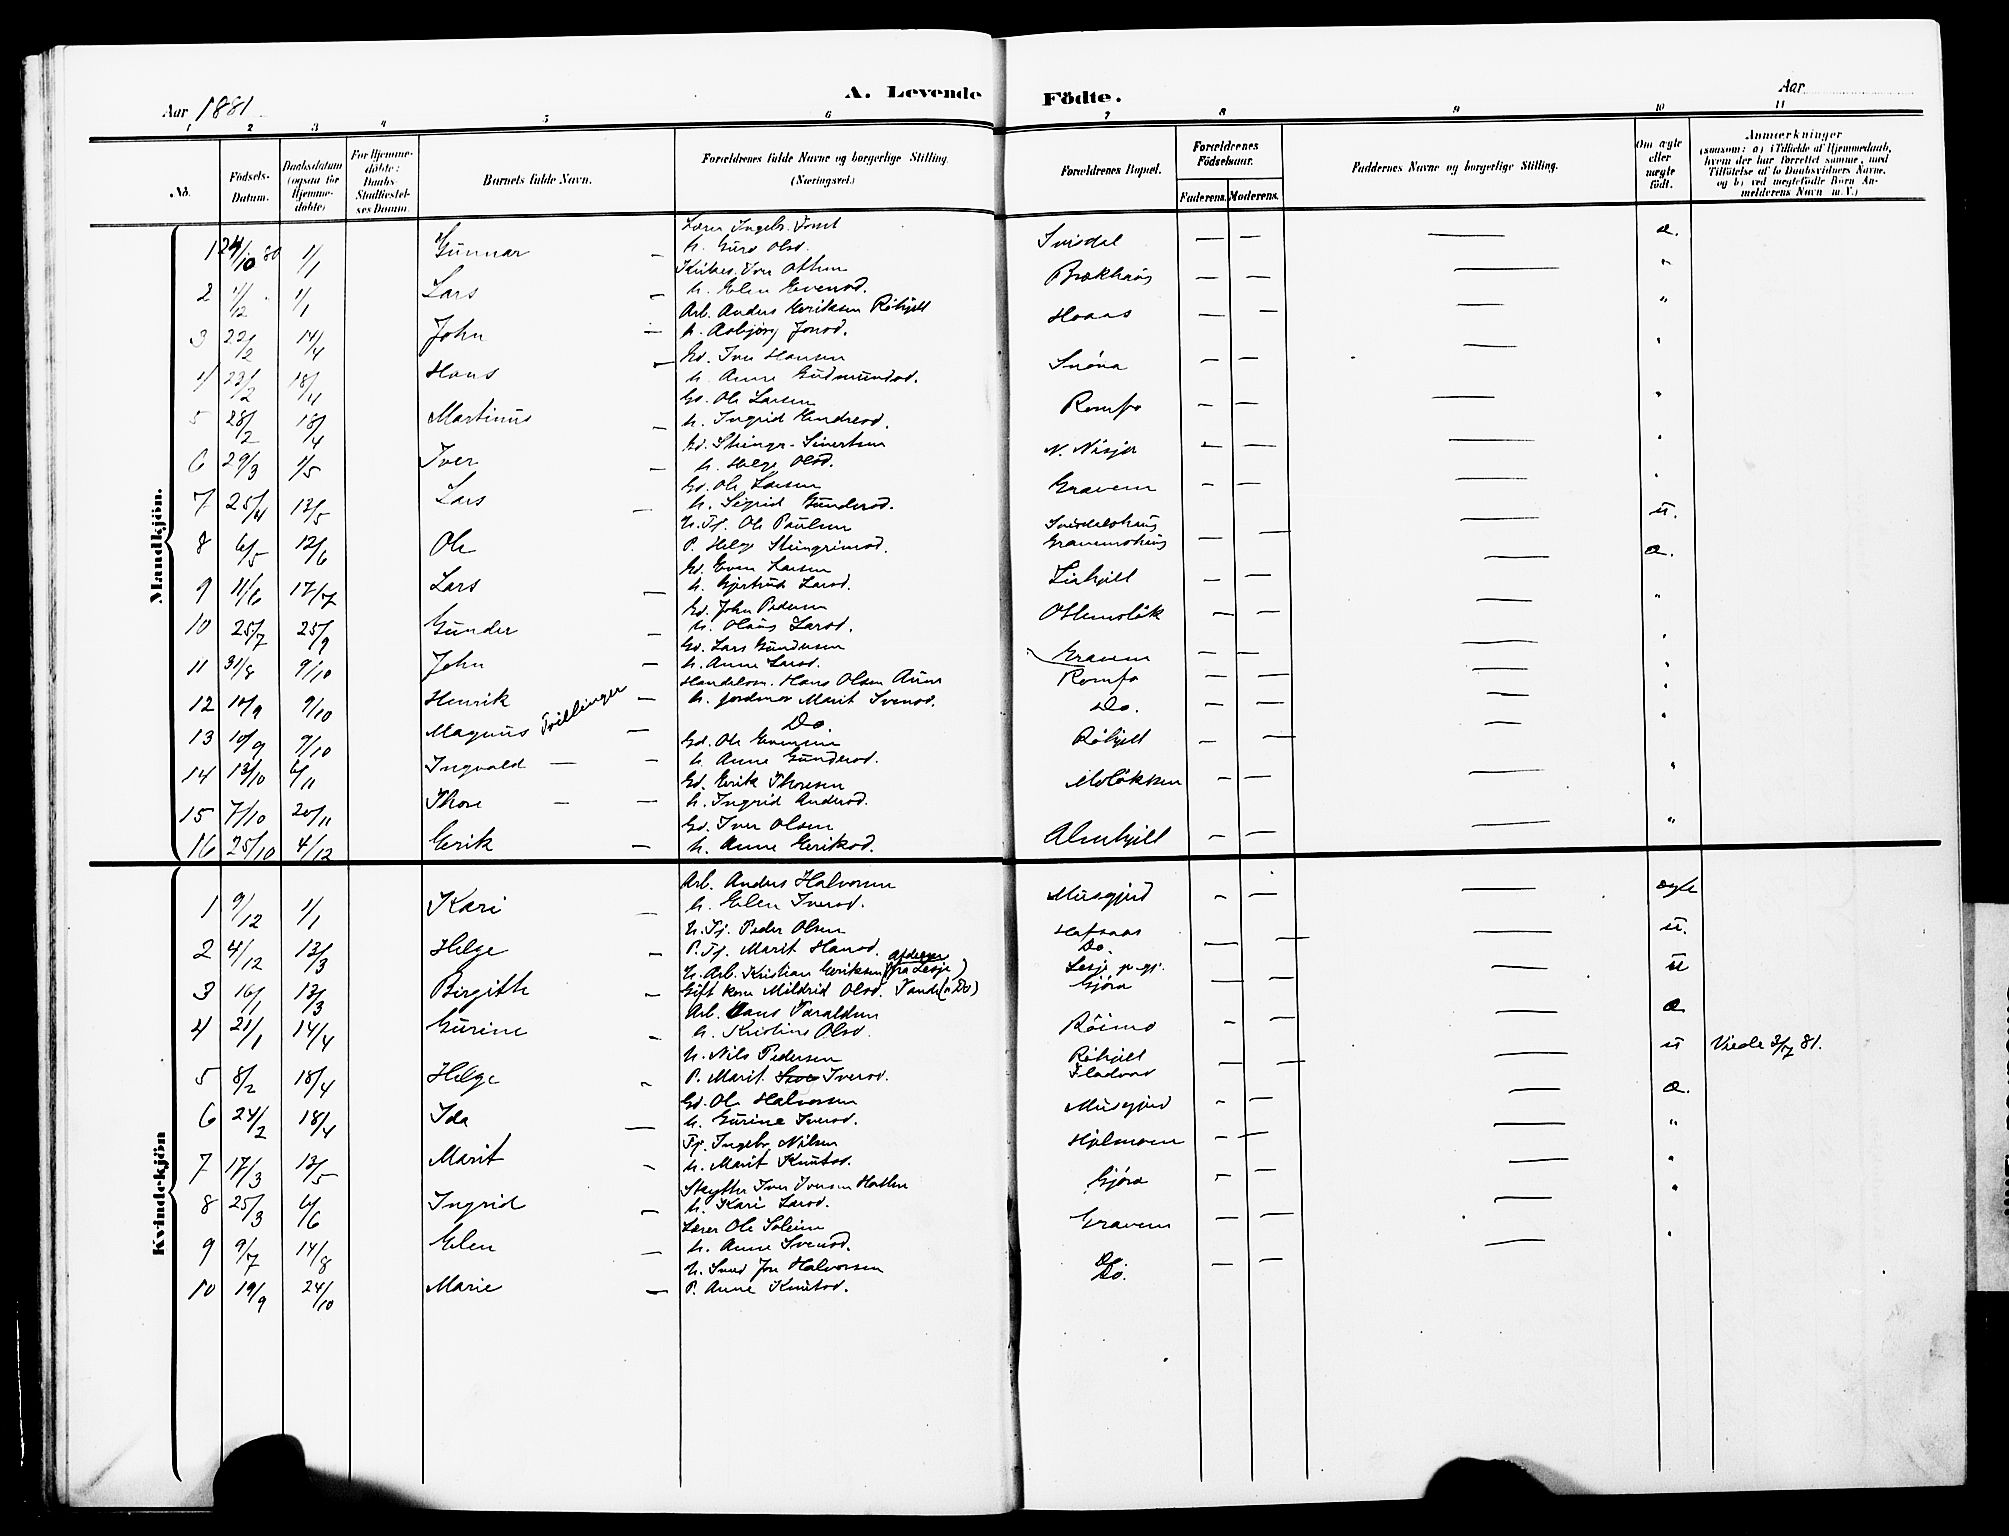 Aar 1881
A. Levende Födte.
Aar
1 2 3 4 5 6 7 8 9 10 11
No.
Födsels-Datum.
Daabsdatum (ogsaa for Hjemme-döbte)
For Hjemme-döbte: Daabs Stadfæstel-ses Datum.
Barnets fulde Navn.
Forældrenes fulde Navne og borgerlige Stilling. (Næringsvei.)
Forældrenes Bopæl.
Forældrenes Födselsaar.
Faderens. Moderens.
Faddernes Navne og borgerlige Stilling.
Om ægte eller uægte födt.
Anmærkninger
(saasom: a) i Tilfælde af Hjemmedaab, hvem der har forrettet samme, med Tilföielse af to Daabsvidners Navne, og b) ved uægtefödte Börn An-melderens Navn m. V.)
Mandkjön.
1 24/10 80 1/1 Gunnar — Lærer Ingebr. h. Guro Olsd. Svisdal — — — æ.
2 1/12 1/1 Lars — Iver h. Elen Evensd. Brækhaug — — — "
3 22/2 14/4 John — Arb. Anders Eriksen Röhjell h. Asbjörg Jonsd. Hoaas — — — "
4 23/2 18/4 Hans — Gd. Iver Hansen h. Anne Gudmundsd. Snöva — — — "
5 28/2 18/4 Martinus — Gd. Ole Larsen h. Ingrid Endresd. Romfo — — — "
6 29/3 1/5 Iver — Gd. Steingr. Sivertsen h. Helge Olsd. N. Nisja — — — "
7 25/4 13/5 Lars — Gd. Ole Larsen h. Sigrid Gundersd. Gravem — — — "
8 6/5 12/6 Ole U. Tj. Ole Paulsen P. Helge Steingrimsd. Svisdalshaug Gravemshaug — — — u.
9 11/6 17/7 Lars — Gd. Even Larsen h. Gjertrud Larsd. Lirhjell — — — æ.
10 25/7 25/9 Gunder — Gd. John Pedersen h. Olaug Larsd. Ottemslök — — — "
11 31/8 9/10 John — Gd. Lars Gundersen h. Anne Larsd. Gravem — — — "
12 10/9 9/10 Henrik — Handelsm. Hans Olsen Aune h. Jordmor Marit Svensd. Romfo — — — "
13 10/9 9/10 Magnus Tvillinger — Do. Do. — — — "
14 13/10 6/11 Ingvald — — Gd. Ole Evensen h. Anne Gundersd. Röhjell — — — "
15 7/10 20/11 Thore — — Gd. Erik Thoresen h. Ingrid Andersd. Mslökken — — — "
16 25/10 4/12 Erik — Gd. Iver Olsen h. Anne Eriksd. Almhjell — — — "
Kvindekjön
1 9/12 1/1 Kari — Arb. Anders Halvorsen h. Elen Iversd. Musgjerd — — — ægte
2 4/12 13/3 Helge — U. Tj. Peder Olsen P. Tj. Marit Hansd. Hafsaas Do. — — — u.
3 16/1 13/3 Birgithe — U. Arb. Kristian Eriksen (fra Lesje) Gift kone Mildrid Olsd. (" Do) Lesje p.gj. Gjöra — — — u
4 21/1 14/4 Gurine — Arb. Haraldsen h. Kristine Olsd. Röimo — — — æ
5 8/2 18/4 Helge U. Nils Pedersen P. Marit Iversd. Röhjell Fladvad — — — u Viede 3/7 81.
6 24/2 18/4 Ida — Gd. Ole Halvorsen h. Gurine Iversd. Musgjerd — — — æ.
7 17/3 13/5 Marit - Tj. Ingebr. Nilsen h. Marit Knutsd. Hjelmoen — — — "
8 25/3 6/6 Ingrid — Skytter Iver Iversen h. Kari Larsd. Gjöra — — — "
9 9/7 14/8 Elen — Lærer Ole Soleim h. Anne Svensd. Gravem — — — "
10 19/9 24/10 Marie — U. Halvorsen P. Anne Knutsd. Do. Do. — — — "